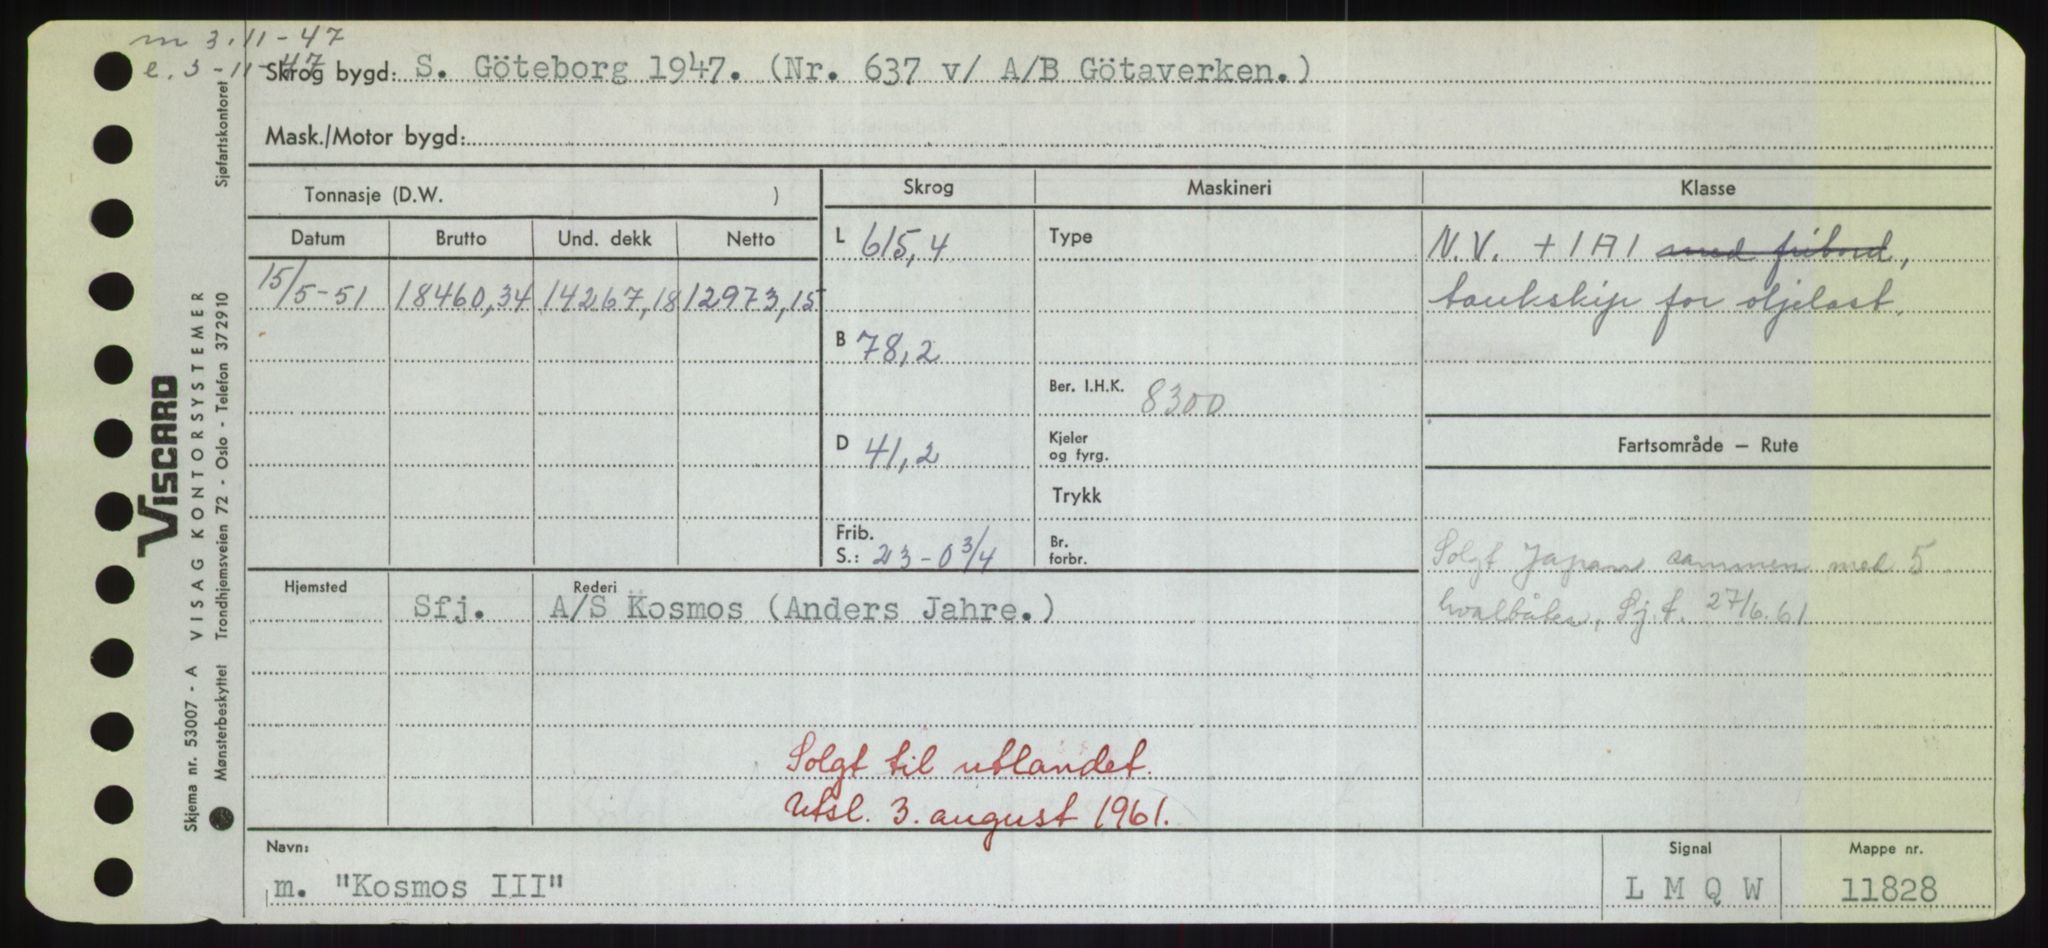 m 3.11-47
e. 3-11-47
Skrog bygd: S. Göteborg 1947. (Nr. 637 v/ A/B Götaverken.)
Mask./Motor bygd:
Tonnasje (D.W. )
Skrog
Maskineri
Klasse
Datum
Brutto
Und. dekk
Netto
15/5-51
18460,34
14267,18
12973,15
L 615,4
B 78,2
D 41,2
Frib.
S.: 23-0 3/4
Type
Ber. I.H.K. 8300
Kjeler
og fyrg.
Trykk
Br.
forbr.
N.V. +1A1 med fribord,
tankskip for oljelast.
Fartsområde – Rute
Solgt Japan sammen med 5
hvalbåter, Sj.t. 27/6.61
Hjemsted
Rederi
Sfj.
A/S Kosmos (Anders Jahre.)
Solgt til utlandet.
Utsl. 3. august 1961.
Navn:
m. "Kosmos III"
Signal
L M Q W
Mappe nr.
11828
VISCARD
Skjema nr. 53007 - A VISAG KONTORSYSTEMER
Mønsterbeskyttet Trondhjemsveien 72 - Oslo - Telefon 372910
Sjøfartskontoret